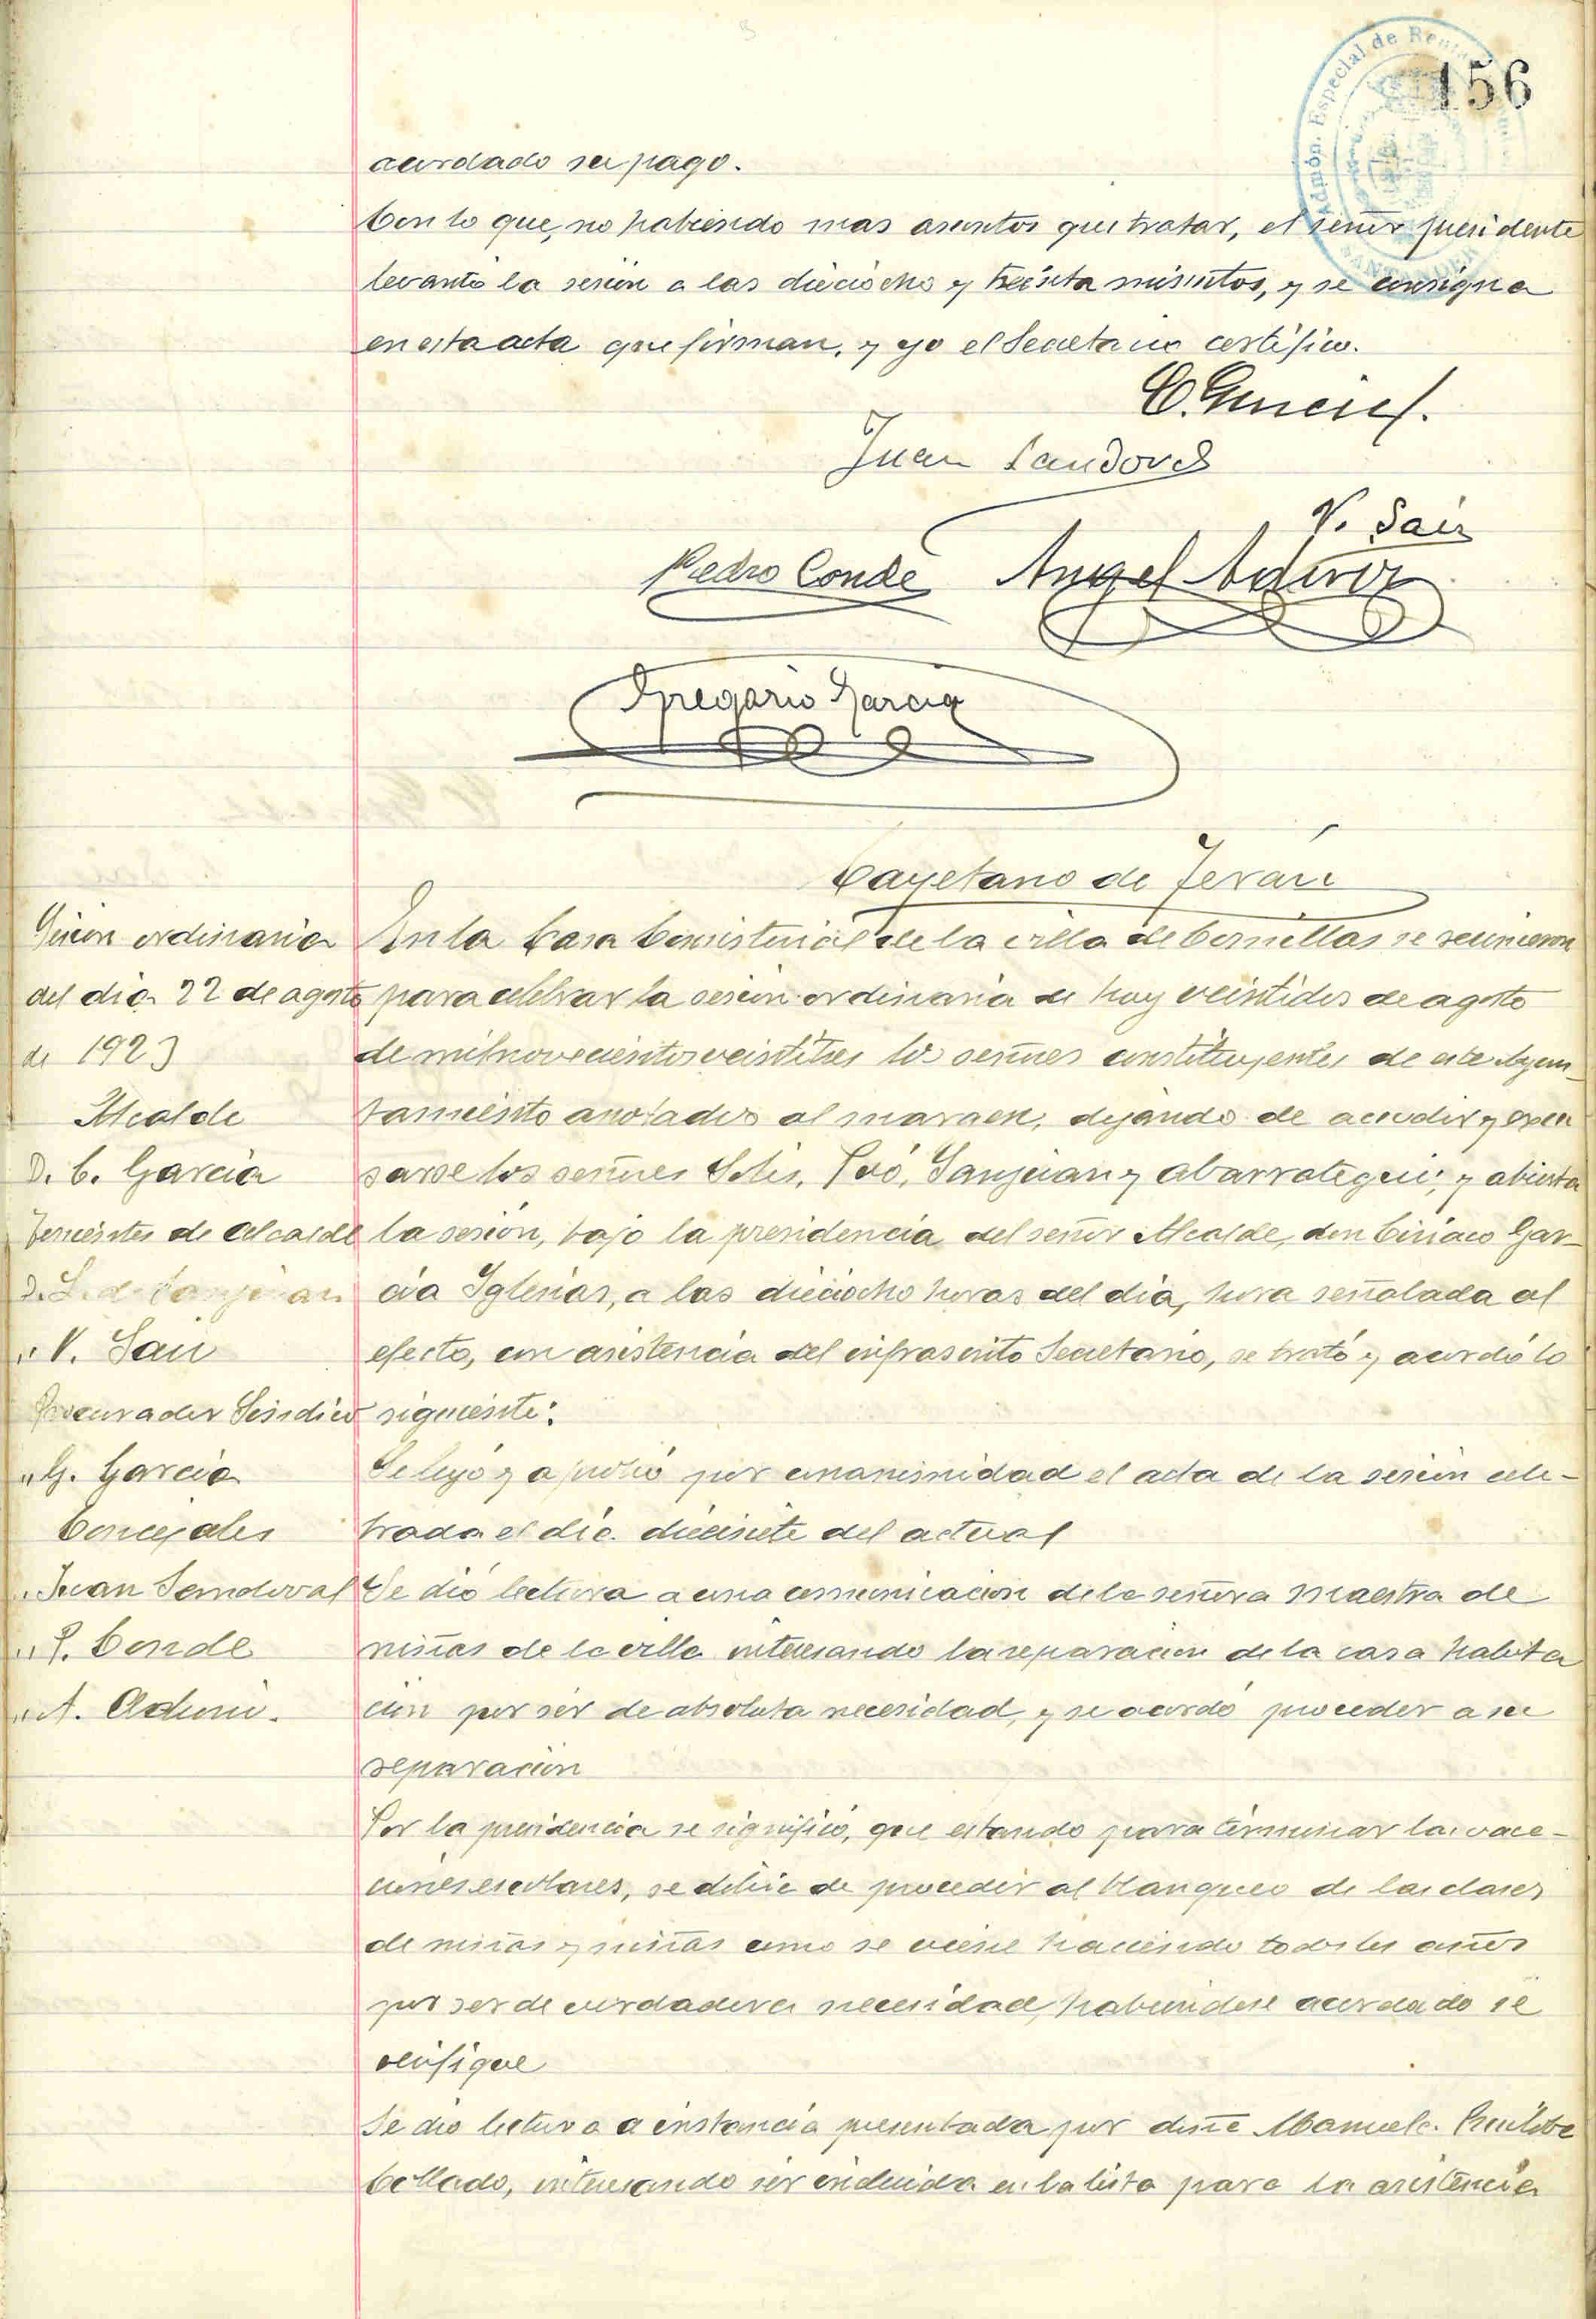 156
acordado su pago.
Con lo que, no habiendo mas asuntos que tratar, el señor presidente
levantó la sesión a las dieciocho y treinta minutos, y se consigna
en esta acta que firman, y yo el Secretario certifico.
Juan Sandoval
V. Saiz
Pedro Conde Angel
Gregorio Garcia
Cayetano de Terán
Sesión ordinaria
del dia 22 de agosto
de 1923
Alcalde
D. C. García
Tenientes de Alcalde
" V. Saiz
Procurador Síndico
" G. García
Concejales
" Juan Sandoval
" P. Conde
" A.
En la Casa Consistorial de la villa de Comillas se reunieron
para celebrar la sesión ordinaria de hoy veintidos de agosto
de mil novecientos veintitres los señores constituyentes de este Ayun
tamiento anotados al margen, dejando de acudir y excu
sarse los señores Solis, Sanjuan y Abarrategui; y abierta
la sesión, bajo la presidencia del señor Alcalde, don Ciriaco Gar-
cia Iglesias, a las dieciocho horas del dia, hora señalada al
efecto, con asistencia del infrascrito Secretario, se trató y acordó lo
siguiente:
Se leyó y aprobó por unanimidad el acta de la sesión cele-
brada el dia diecisiete del actual
Se dió lectura a una comunicación de la señora Maestra de
niñas de la villa interesando la reparacion de la casa habita
cion por ser de absoluta necesidad, y se acordó proceder a su
reparacion
Por la presidencia se significó, que estando para terminar las vaca-
ciones escolares, se debia de proceder al blanqueo de las clases
de niños y niñas como se viene haciendo todos los años
por ser de verdadera necesidad, habiendose acordado se
verifique
Se dio lectura a instancia presentada por doña Manuela
Collado, interesando ser incluida en la lista para la asistencia